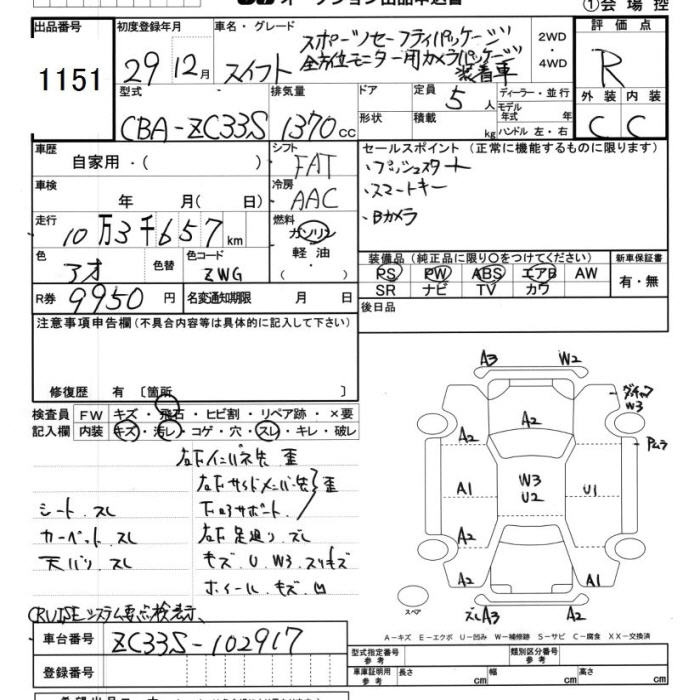 オークション出品申込書
①会場控
出品番号
1151
初度登録年月
29 12月
車名・グレード
スイフト スポーツセーフティパッケージ
全方位モニター用カメラパッケージ
装着車
2WD
・4WD
評価点
R
外装 内装
C C
型式
CBA-ZC33S
排気量
1370cc
ドア
形状
定員 5人
積載 kg
ディーラー・並行
モデル年式 年式
ハンドル 左・右
車歴
自家用・( )
シフト
FAT
セールスポイント(正常に機能するものに限ります)
・プッシュスタート
・スマートキー
・Bカメラ
車検
年 月( 日)
冷房
AAC
走行
10万3千657km
燃料
ガソリン
軽油
・( )
色
アオ
色替
色コード
ZWG
装備品(純正品に限り○をつけてください)
PS PW ABS エアB AW
SR ナビ TV カワ
新車保証書
有・無
R券 9950円
名変通知期限 月 日
後日品
注意事項申告欄(不具合内容等は具体的に記入して下さい)
修復歴 有 〔箇所 〕
検査員記入欄
FW キズ・飛石・ヒビ割・リペア跡・×要
内装 キズ・汚レ・コゲ・穴・スレ・キレ・破レ
右下インパネ先 歪
右下サイドメンバー先 歪
シート スレ
下回りサポート
カーペット スレ
右下足廻り スレ
天バリ スレ
キズ U W3 スリキズ
ホイール キズ 凹
CRUISEシステム要点検表示
車台番号 ZC33S-102917
登録番号
A3 W2
A2
W3
A2 A2
A1 W3 U2 U1
A2
A2 A2 A1
スペア
スレA3 A2
A－キズ E－エクボ U－凹み W－補修跡 S－サビ C－腐食 XX－交換済
型式指定番号 参考
類別区分番号 参考
車庫証明用 参考
長さ cm 幅 cm 高さ cm